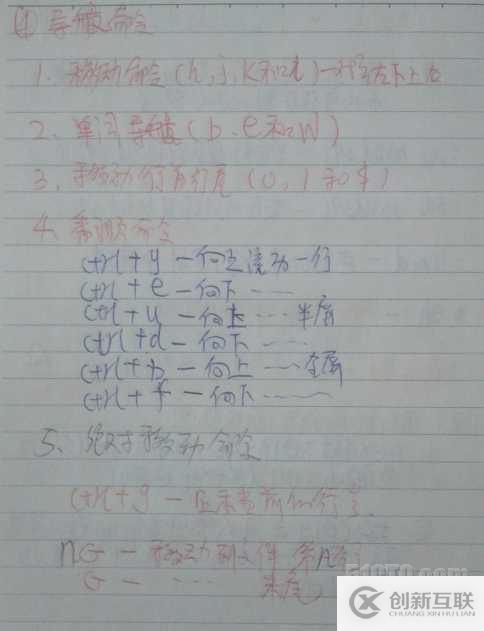 (1) 导航命令
1. 移动命令 (h, j, k和l)—对应左下上右
2、单词导航 (b、e和w)
3、移动行首行尾 (0, | 和 $)
4、翻页命令
ctrl + y — 向上滚动一行
ctrl + e — 向下 ……
ctrl + u — 向上 … 半屏
ctrl + d — 向下 ……
ctrl + b — 向上 …… 全屏
ctrl + f — 向下 ……
5、绝对移动命令
ctrl + g — 显示当前的行号
nG — 移动到文件 第n行
G — …… 末尾
创新互联